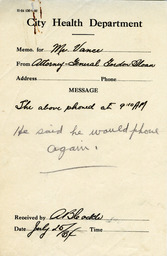 City Health Department
Memo. for Mr. Vance
From Attorney General Gordon Sloan
Address Phone
MESSAGE
The above phoned at 9:10 AM
He said he would phone
again.
Received by
Date July 25/61